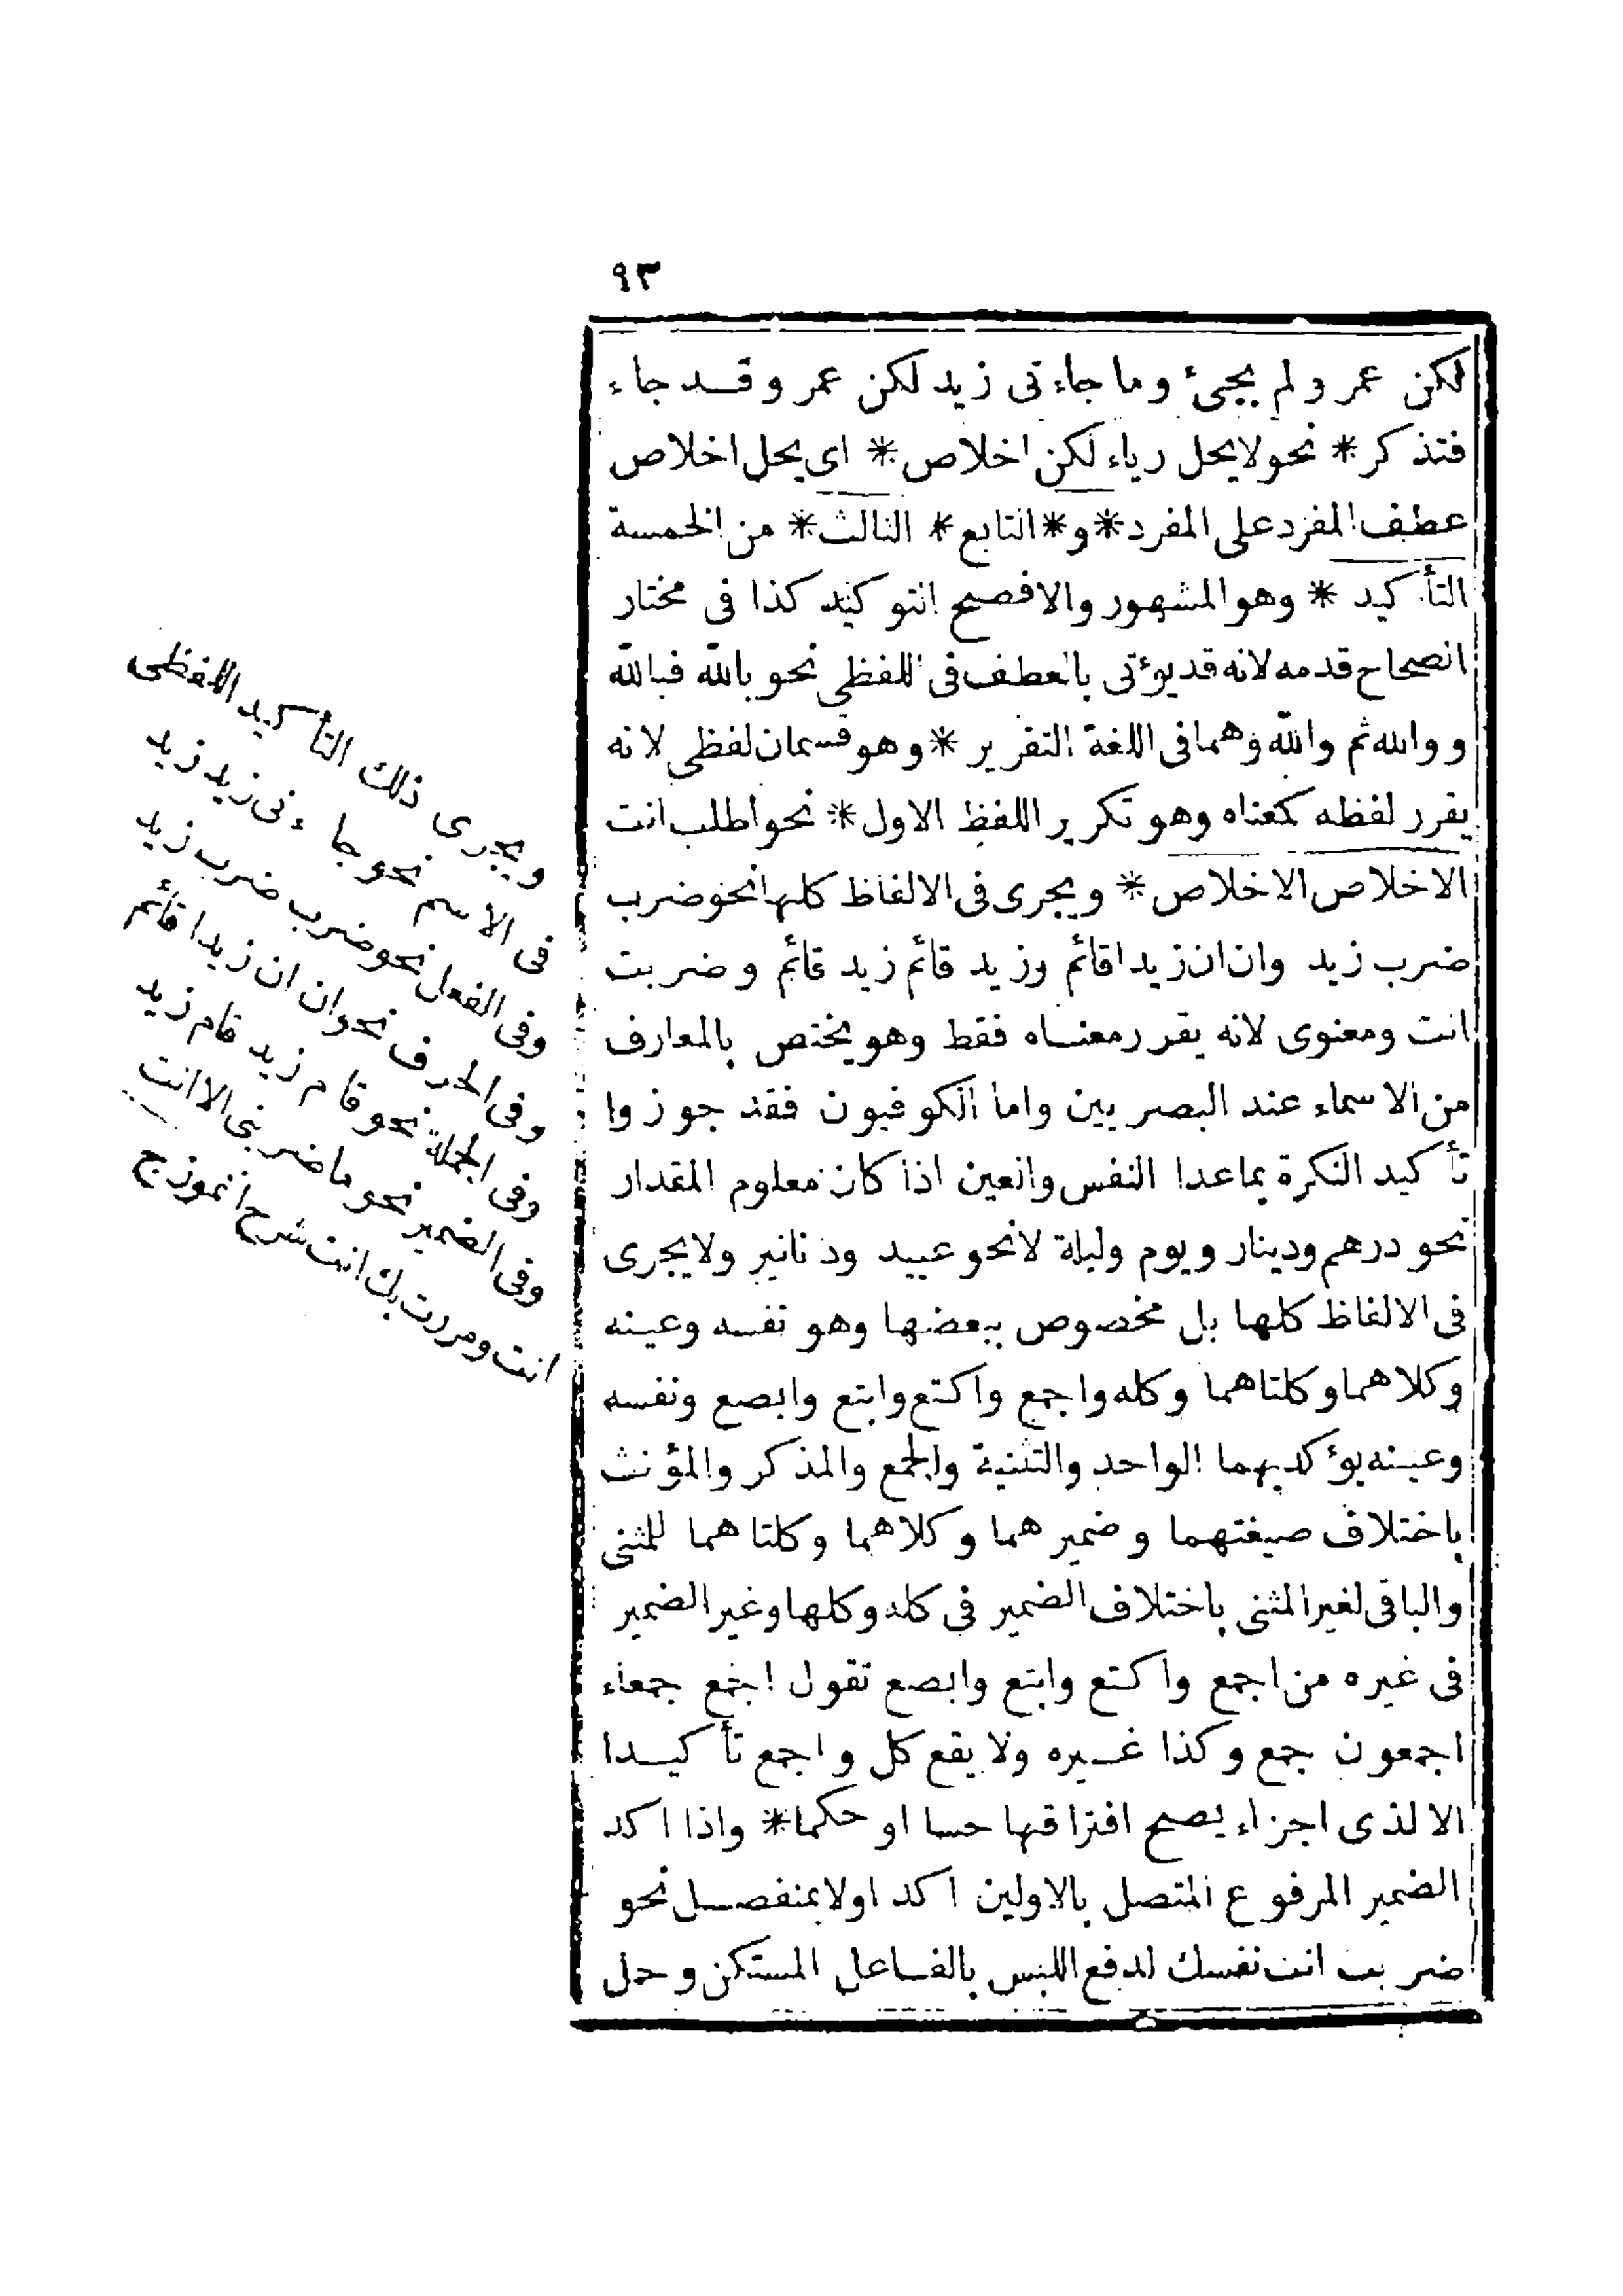 ٩٣
لكن عمرو لم يجئ وما جاءنى زيد لكن عمرو قد جاء
فتذكر * نحو لا يحل رياء لكن اخلاص * اى يحل اخلاص
عطف المفرد على المفرد * و * التابع * الثالث * من الخمسة
التأكيد * وهو المشهور والافصح التوكيد كذا فى مختار
الصحاح قدمه لانه قد يؤتى بالعطف فى اللفظى نحو بالله فبالله
ووالله ثم والله وهما فى اللغة التقرير * وهو قسمان لفظى لانه
يقرر لفظه كمعناه وهو تكرير اللفظ الاول * نحو اطلب انت
الاخلاص الاخلاص * ويجرى فى الالفاظ كلها نحو ضرب
ضرب زيد وان ان زيدا قائم وزيد قائم زيد قائم وضربت
انت ومعنوى لانه يقرر معناه فقط وهو يختص بالمعارف
من الاسماء عند البصريين واما الكوفيون فقد جوزوا
تأكيد النكرة بماعدا النفس والعين اذا كان معلوم المقدار
نحو درهم ودينار ويوم وليلة لا نحو عبيد ودنانير ولا يجرى
فى الالفاظ كلها بل مخصوص ببعضها وهو نفسه وعينه
وكلاهما وكلتاهما وكله واجمع واكتع وابتع وابصع ونفسه
وعينه يؤكد بهما الواحد والتثنية والجمع والمذكر والمؤنث
باختلاف صيغتهما وضميرهما وكلاهما وكلتاهما للمثنى
والباقى لغير المثنى باختلاف الضمير فى كله وكلها وغير الضمير
فى غيره من اجمع واكتع وابتع وابصع تقول اجمع جمعاء
اجمعون جمع وكذا غيره ولا يقع كل واجمع تأكيدا
الا لذى اجزاء يصح افتراقها حسا او حكما * واذا اكد
الضمير المرفوع المتصل بالاولين اكد اولا بمنفصل نحو
ضربت انت نفسك لدفع اللبس بالفاعل المستكن وحل
ويجرى ذلك التأكيد اللفظى
فى الاسم نحو جاءنى زيد زيد
وفى الفعل نحو ضرب ضرب زيد
وفى الحرف نحو ان ان زيدا قائم
وفى الجملة نحو قام زيد قام زيد
وفى الضمير نحو ما ضربنى الا انت
انت ومررت بك انت شرح انموزج